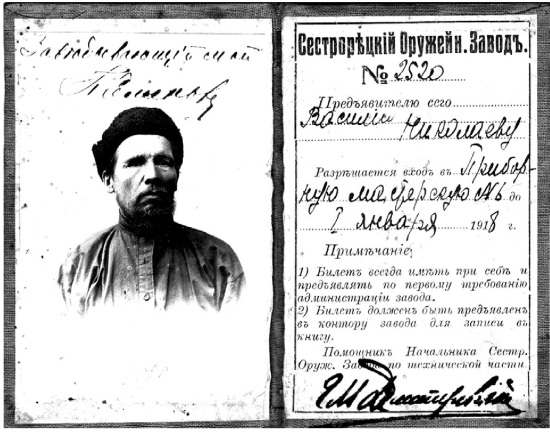 Завѣдывающій
Сестрорѣцкій Оружейн. Заводъ.
№ 2520
Предъявителю сего
Василію Николаеву
Разрѣшается входъ въ Прибор-
ную мастерскую до
1 января 1918 г.
Примѣчаніе:
1) Билетъ всегда имѣть при себѣ и
предъявлять по первому требованію
администраціи завода.
2) Билетъ долженъ быть предъявленъ
въ контору завода для записи въ
книгу.
Помощникъ Начальника Сестр.
Оруж. Завода по технической части